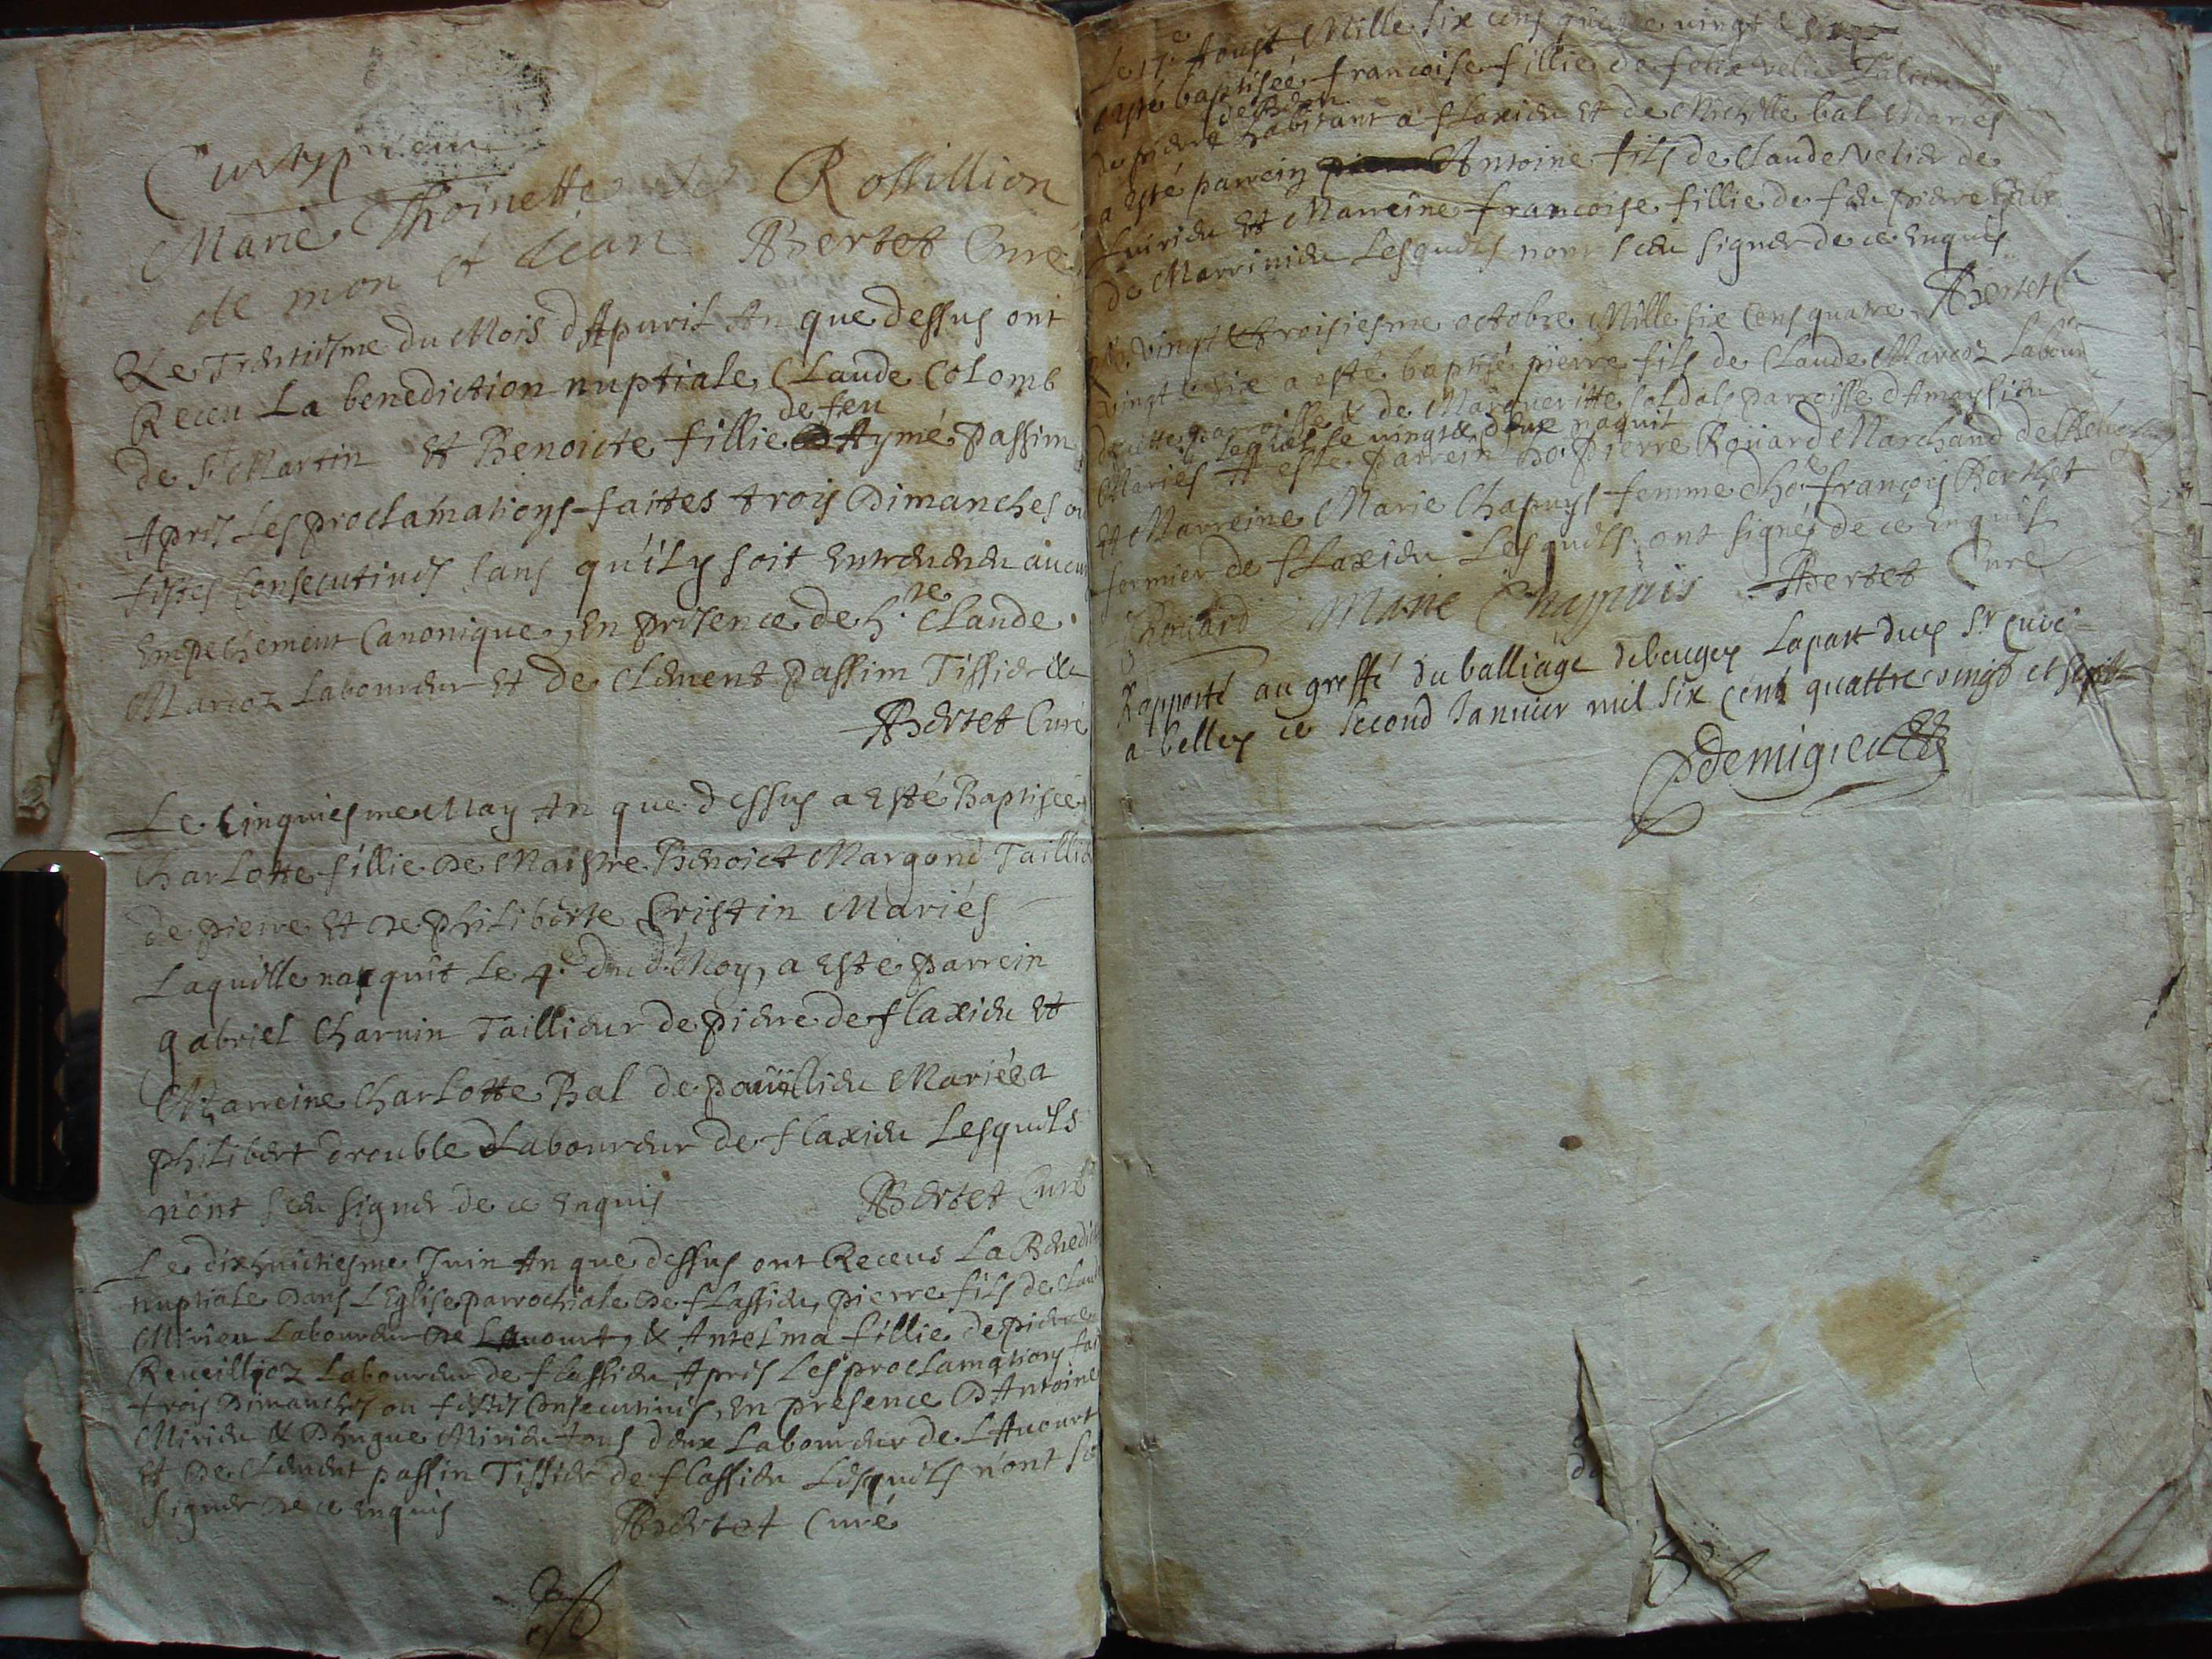 Marie Thoinette de Rossillion
de mon et Jean Bertet Curé
Le Trentiesme du Mois dApuril An que dessus ont
Receu La benediction nuptiale, Claude Colomb
de feu
de St Martin et Benoicte fillie Aymé passim
Apres Les proclamations faittes trois Dimanches ou
festes Consecutiues sans qu'ily soit Entreuenu aucun
Empechement Canonique, En presence de h.re Claude
Marcoz Laboureur et de Clement passim Tissier &c
Bertet Curé
Le Cinquiesme May An que dessus a Esté Baptisée
Charlotte fillie de Maistre Benoict Margoni Taillie
de pierre et de philiberte Cristin Mariés
Laquelle nasquit Le 4.e du d. Moy, a Esté parrein
gabriel Charuin Taillieur de pierre de flaxieu et
Marreine Charlotte Bal de pouillieu Mariée a
philibert drouble Laboureur de flaxieu Lesquels
n'ont sceu signer de ce Enquis
Bertet Curé
Le dixhuictiesme Juin An que dessus ont Receus La Benedict
nuptiale Dans LEglise parrochiale de flassieu, pierre fils de Claud
Mirieu Laboureur de Lauourt, & Antelma fillie de pierre
Reueillioz Laboureur de flassieu Apres Les proclamations fai
trois Dimanches ou festes Consecutiues, En presence DAntoine
Mirieu & Dhugue Mirieu tous deux Laboureur de LAuourt
et de Clement passin Tissier de flassieu Lesquels n'ont sc
signer de ce Enquis
Bertet Curé
Le 17e Aoust Mille six cens quatre vingt &
a esté baptisée francoise fillie de felix velie
de pierre habitant a flaxieu et de Michelle bal Mariés
a esté parrein Antoine fils de Claude velier de
Luirieu et Marreine francoise fillie de feu pierre
de Marrinieu Lesquels nont sceu signer de ce Enquis
Bertet C
Le vingt & troisiesme octobre Mille six Cens quatre
vingt & six a esté baptisé pierre fils de Claude Marcoz Labour
de cette parroisse & de Margueritte soldals parroisse dAmaysieu
Lequel le vingt & deux naquit
Mariés A este parrein ho. pierre Roüard Marchand de
et Marreine Marie Chapuys femme dho.e françois Berthet
fermier de flaxieu Lesquels ont signés de ce Enquis
Roüard Marie Chappuis Bertet Curé
Rapporté au greffe du balliage de beugey Lapart dud Sr Curé
a belley ce second Januier mil six cent quattre vingt et sept
Demigieu